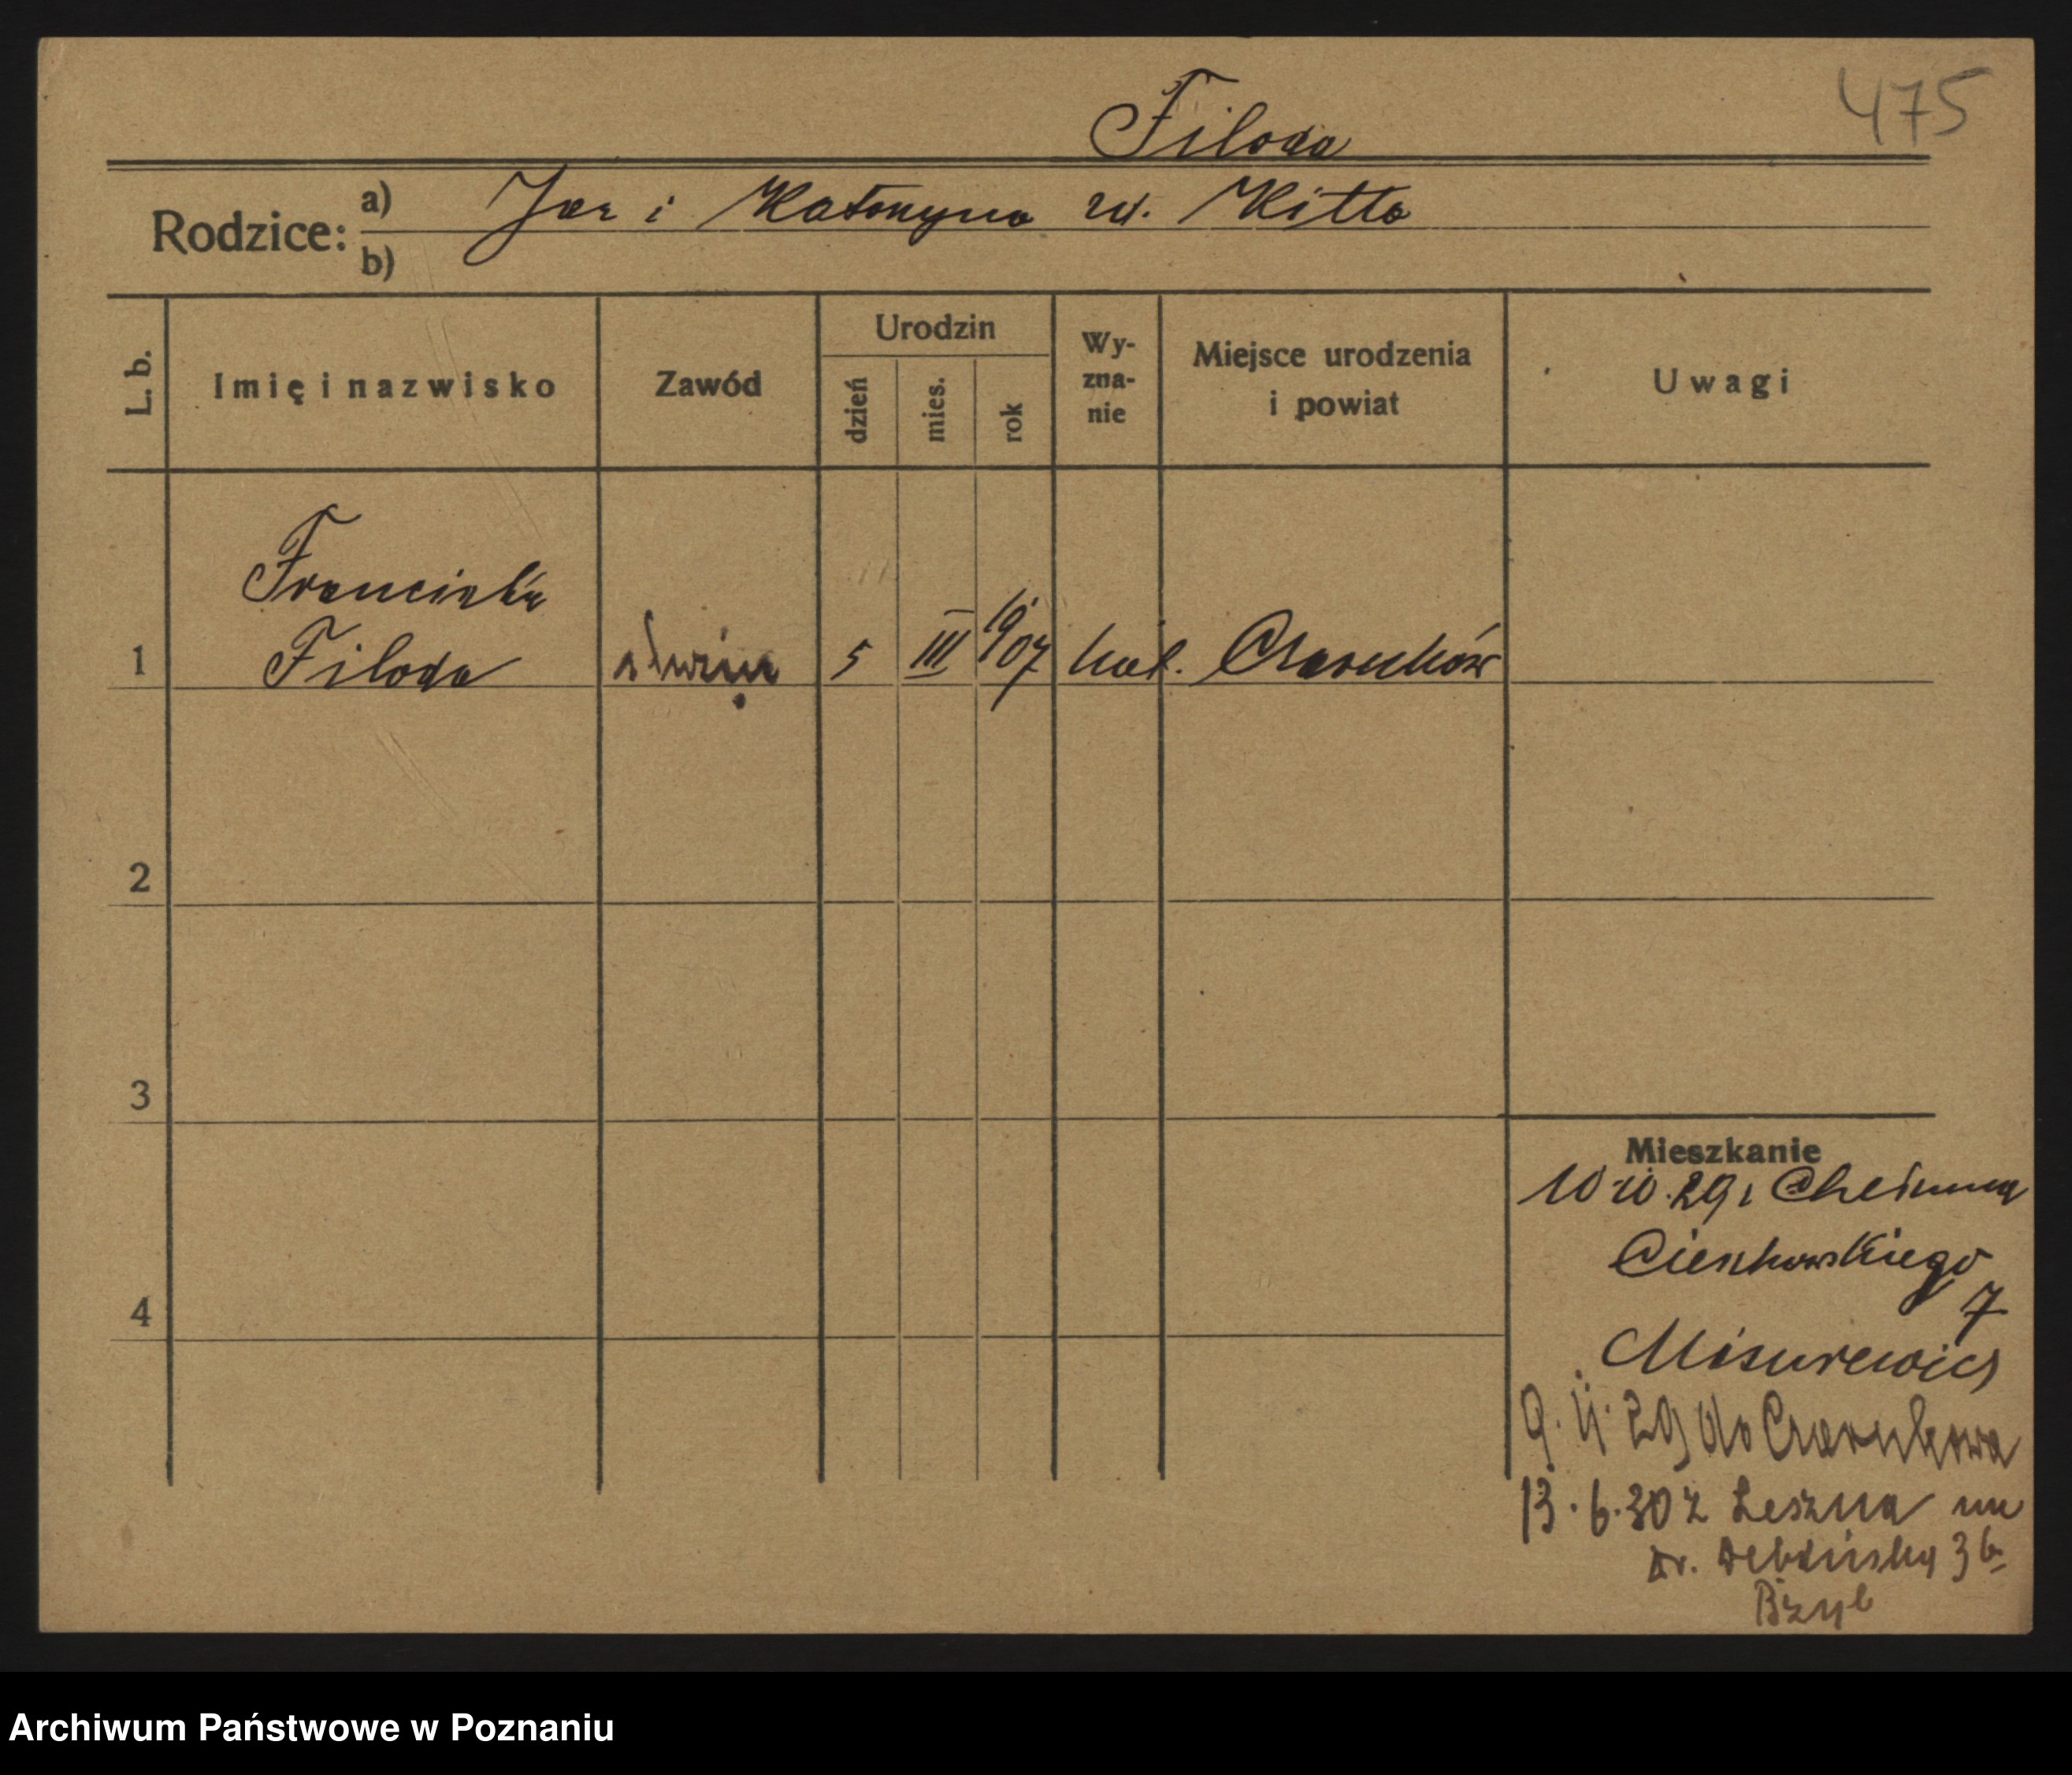 475
Filoda
Rodzice: a) Jan i Katarzyna zd. Kitta
b)
L. b.
Imię i nazwisko
Zawód
Urodzin
dzień
mies.
rok
Wy-
zna-
nie
Miejsce urodzenia
i powiat
Uwagi
Franciszka
1 Filoda służąca 5 III 1907 kat. Czarnków
2
3
4
Mieszkanie
10.10.29 z Chełmna
Cieszkowskiego
7
Misurewicz
9.11.29 do Czarnkowa
13.6.30 z Leszna
Dr. Dębińska 3b
Archiwum Państwowe w Poznaniu